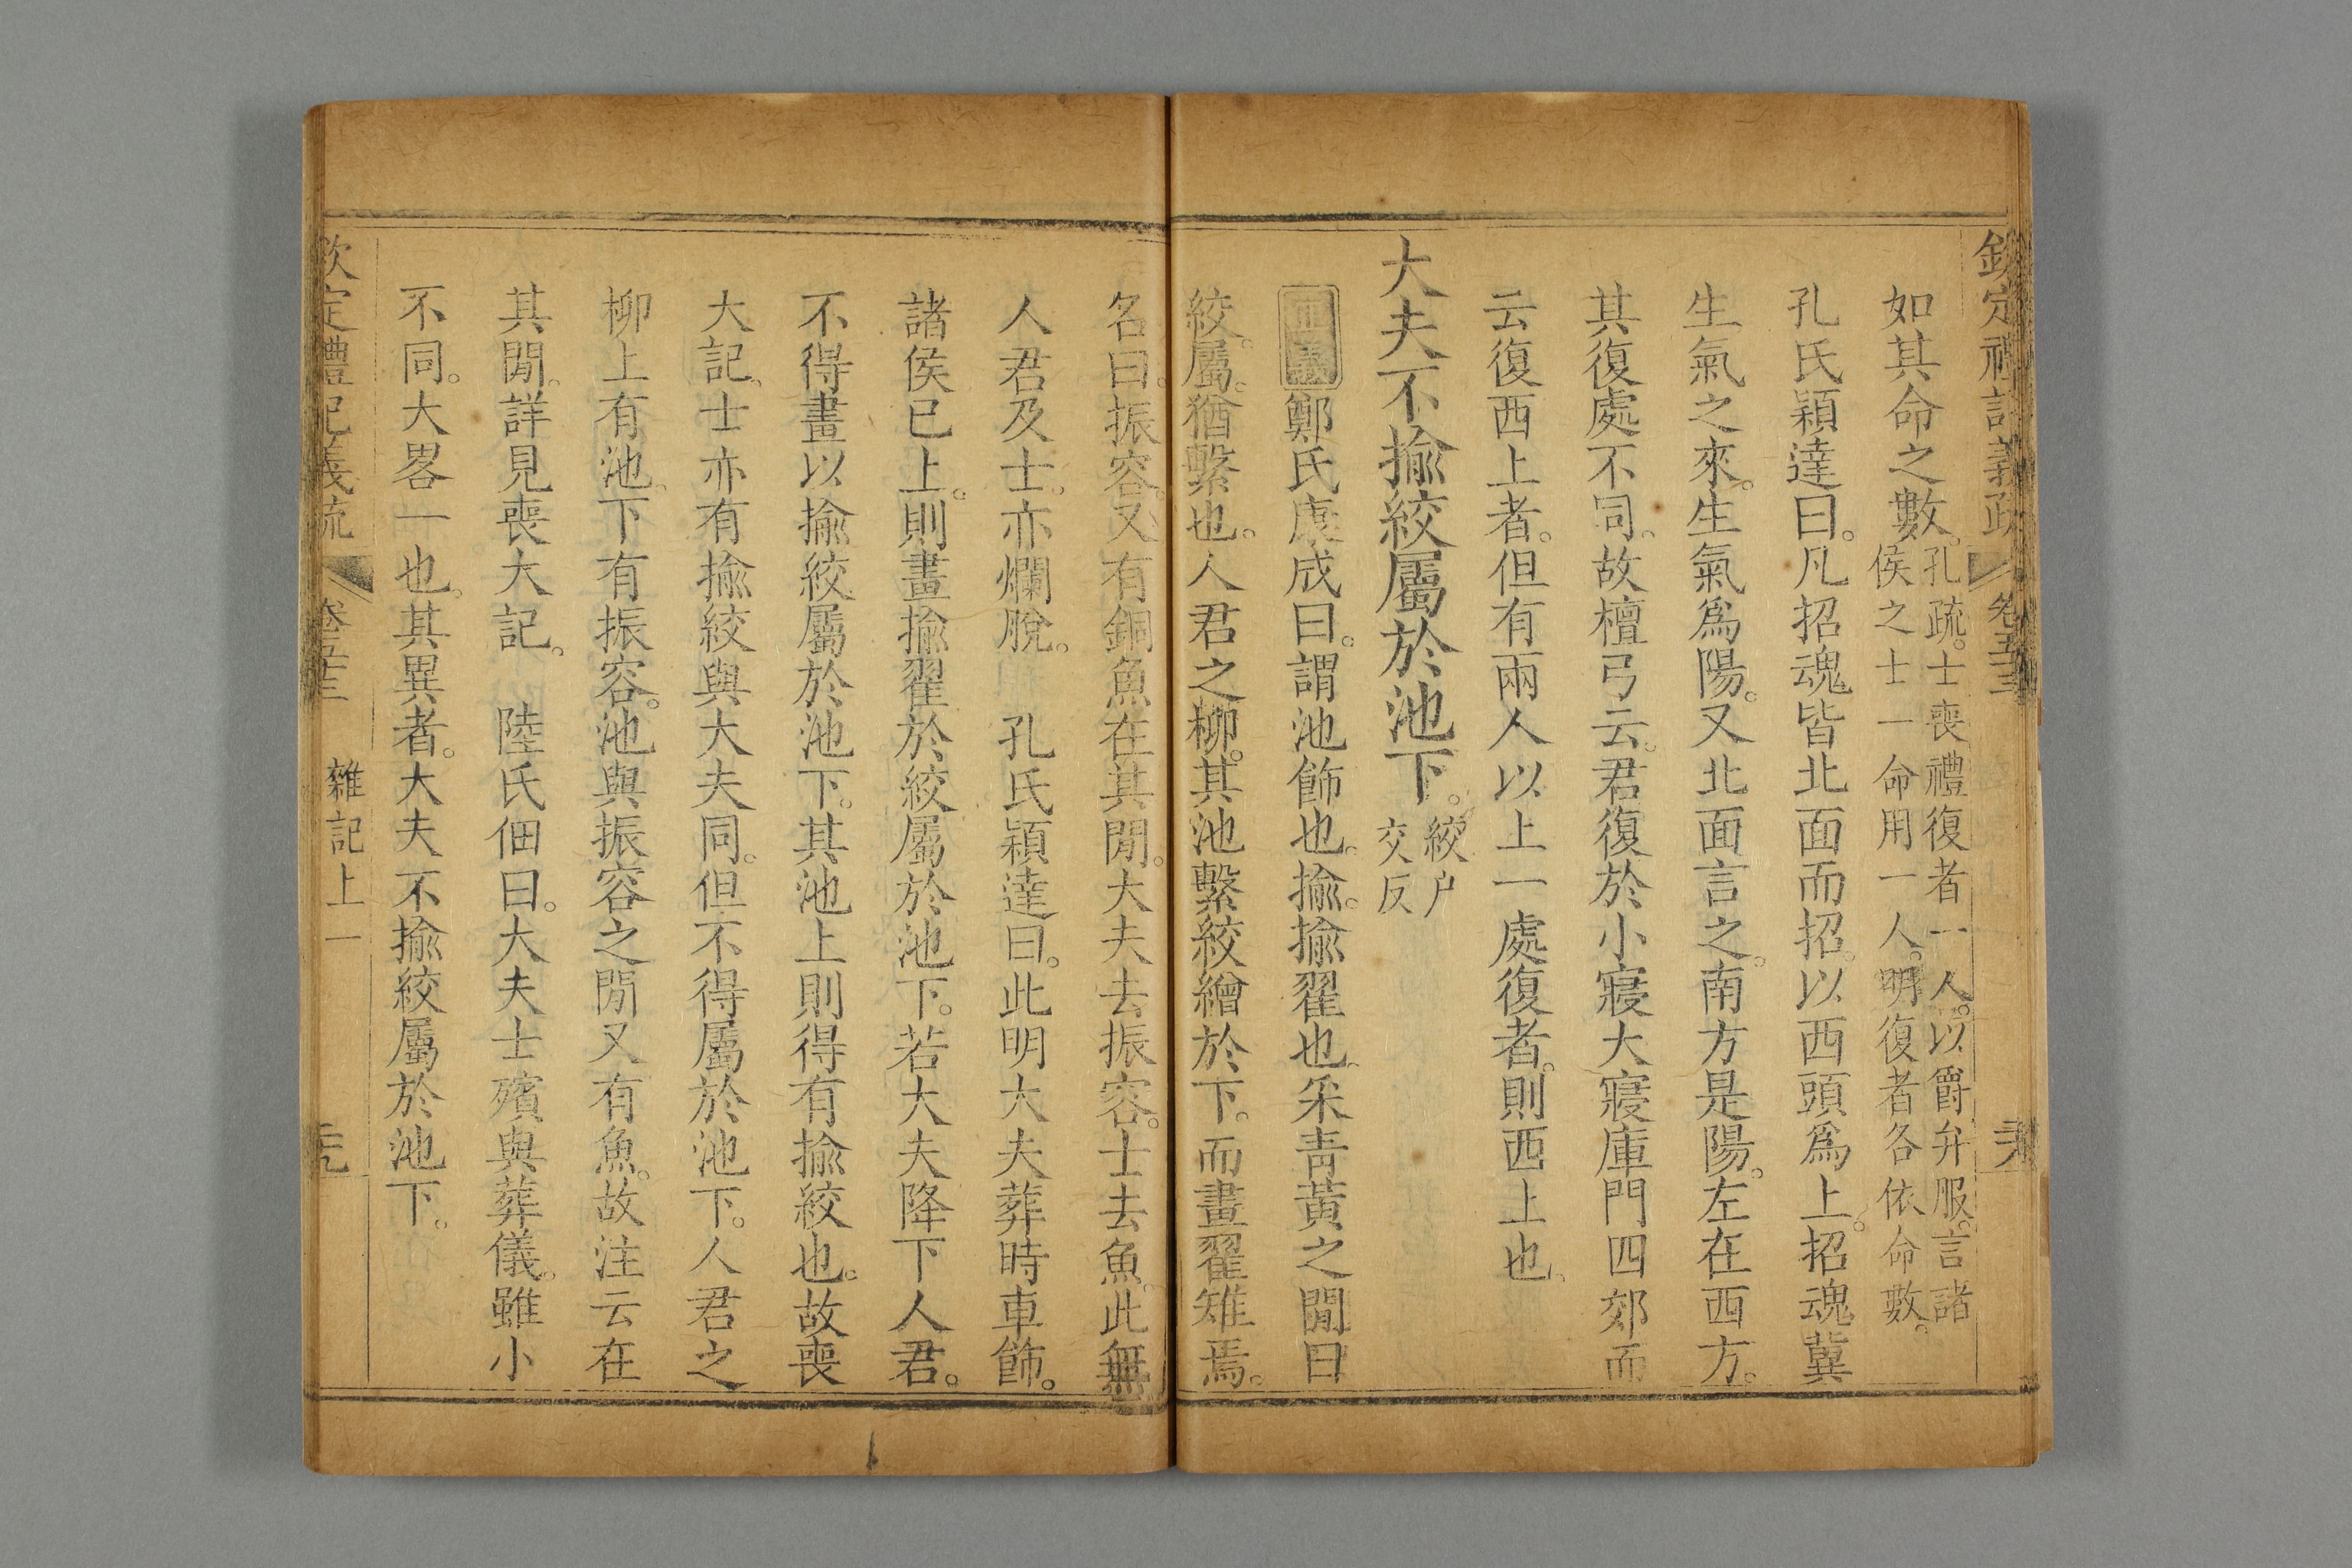 欽定禮記義疏 卷五十三
如其命之數。孔疏。士喪禮復者一人。以爵弁服。言諸
侯之士一命用一人。明復者各依命數。
孔氏穎達曰。凡招魂皆北面而招。以西頭爲上。招魂冀
生氣之來。生氣爲陽。又北面言之。南方是陽。左在西方。
其復處不同。故檀弓云。君復於小寢大寢庫門四郊而
云復西上者。但有兩人以上一處復者。則西上也。
大夫不揄絞屬於池下。絞戶
交反
正義鄭氏康成曰。謂池飾也。揄。揄翟也。采靑黃之閒曰
絞。屬。猶繫也。人君之柳。其池繫絞繒於下。而畫翟雉焉。
名曰振容。又有銅魚在其閒。大夫去振容。士去魚。此無
人君及士。亦爛脫。 孔氏穎達曰。此明大夫葬時車飾。
諸侯已上。則畫揄翟於絞屬於池下。若大夫降下人君。
不得畫以揄絞屬於池下。其池上則得有揄絞也。故喪
大記。士亦有揄絞與大夫同。但不得屬於池下。人君之
柳上有池。下有振容。池與振容之閒又有魚。故注云在
其閒。詳見喪大記。 陸氏佃曰。大夫士殯與葬儀。雖小
不同。大畧一也。其異者。大夫不揄絞屬於池下。
欽定禮記義疏 卷五十三 雜記上一